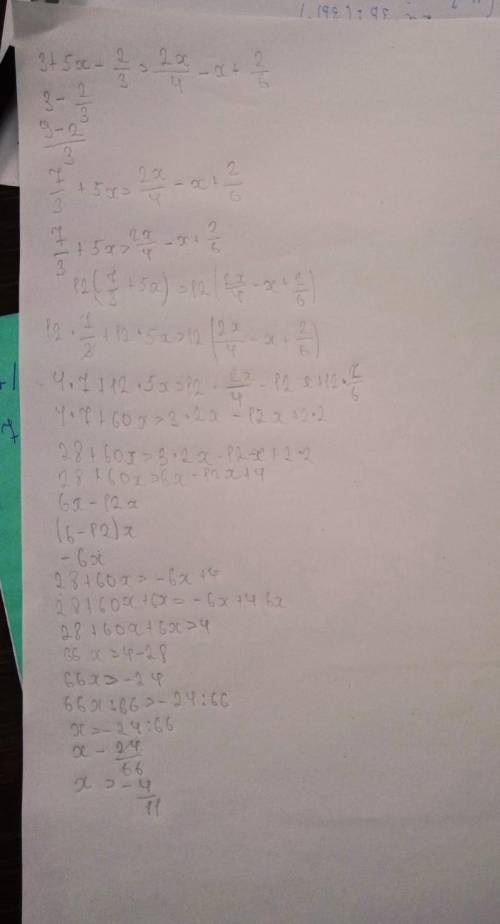 3+5x-2/3=2x/4-x+2/6
3-2/3
9-2/3
7/3+5x=2x/4-x+2/6
7/3+5x=2x/4-x+2/6
12(7/3+5x)=12(2x/4-x+2/6)
12•7/3+12•5x=12(2x/4-x+2/6)
4•7+12•5x=12•2x/4-12x+12•2/6
4•7+60x=3•2x-12x+2•2
28+60x=3•2x-12x+2•2
28+60x=6x-12x+4
6x-12x
(6-12)x
-6x
28+60x=-6x+4
28+60x+6x=-6x+4 6x
28+60x+6x=4
66x=4-28
66x=-24
66x:66=-24:66
x=-24:66
x-24/66
x=-4/11
7